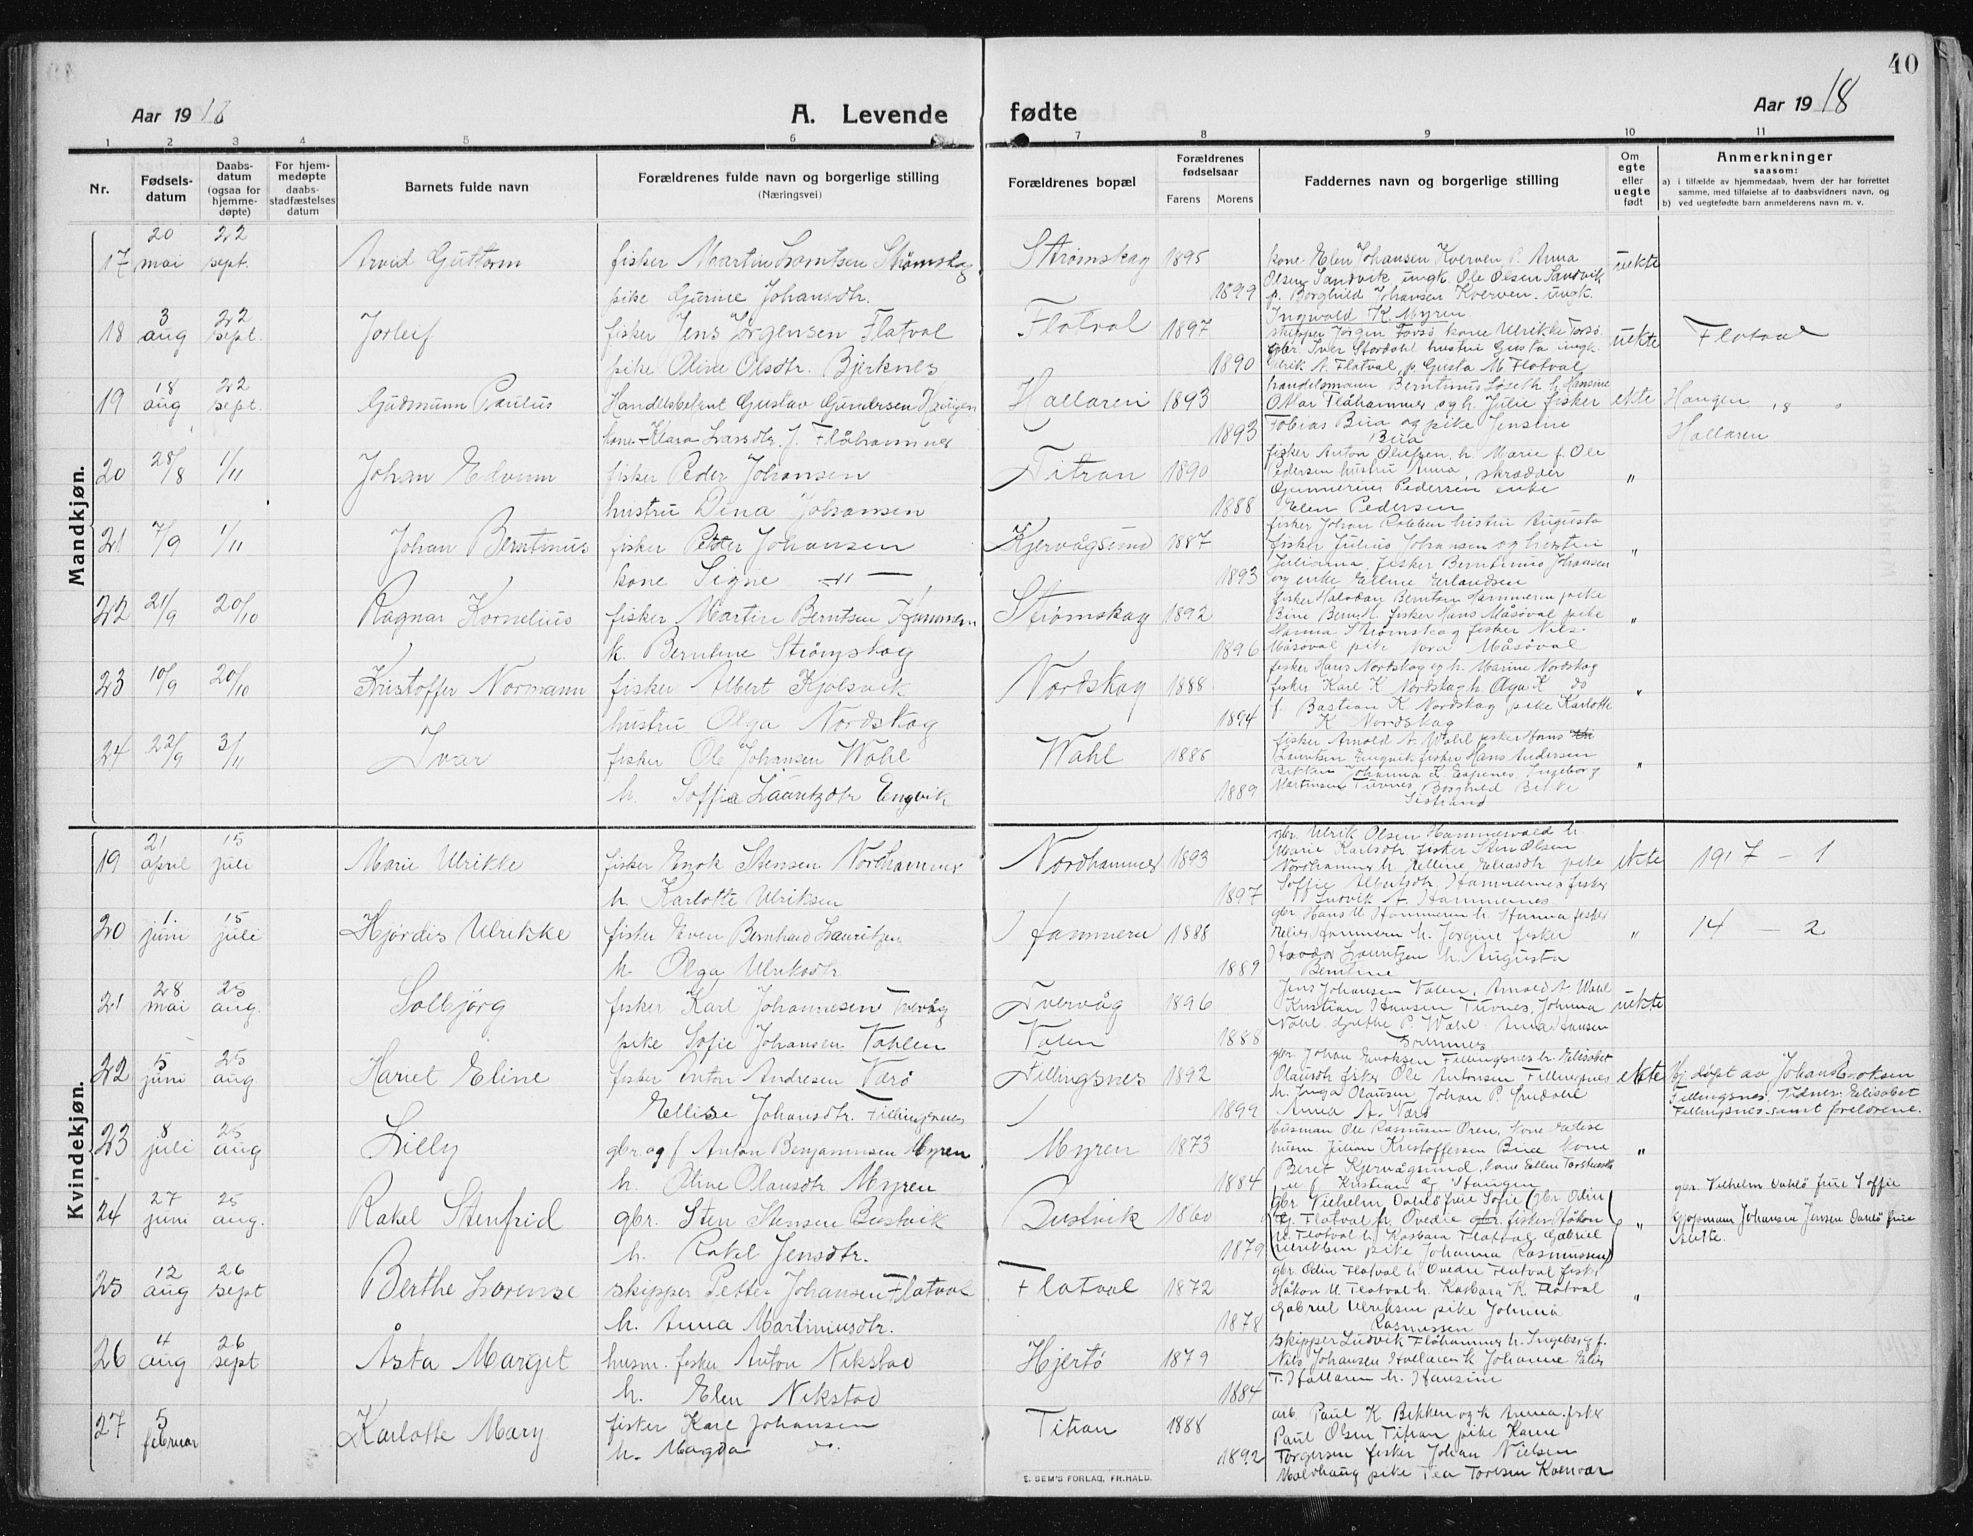 40
Aar 1918
A. Levende
fødte
Aar 1918
1 2 3 4 5 6 7 8 9 10 11
Nr.
Fødsels-
datum
Daabs-
datum
(ogsaa for
hjemme-
døpte)
For hjem-
medøpte
daabs-
stadfæstelses
datum
Barnets fulde navn
Forældrenes fulde navn og borgerlige stilling
(Næringsvei)
Forældrenes bopæl
Forældrenes
fødselsaar
Farens Morens
Faddernes navn og borgerlige stilling
Om
egte
eller
uegte
født
Anmerkninger
saasom:
a) i tilfælde av hjemmedaab, hvem der har forrettet
samme, med tilføielse af to daabsvidners navn, og
b) ved uegtefødte barn anmelderens navn m. v.
Mandkjøn.
17 20 mai 22 sept. Arvid Guttorm fisker Martin Lorntsen Strømskag Strømskag 1895 kone Elen Johansen Kverven p. Anna uekte
Olsen Sandvik ungk. Ole Olsen Sandvik
pike Gurine Johansdtr. 1899 p. Borghild Johansen Kverven. ungk.
Ingvald K. Myren
18 3 aug 22 sept. Jorleif fisker Jens Jørgensen Flatval Flatval 1897 skipper Jørgen Torsø kone Ulrikke Torsø uekte Flatval
gbr. Iver Stordahl hustru Gusta ungk.
pike Oline Olsdtr. Bjerknes 1890 Ulrik A. Flatval, p. Gusta M Flatval
19 18 aug 22 sept. Gudmunn Paulus Handelsbetjent Gustav Gundersen Haugen Hallaren 1893 handelsmann Berntinus Løseth h. Hansine ekte Haugen
Otilar Flåhammer, og h. Julie fisker
kone Klara Larsdtr. f. Flåhammer 1893 Tobias Bua og pike Jensine Hallaren
Bua
20 28/8 1/11 Johan Edvinn fisker Peder Johansen Titran 1890 fisker Anton Olufsen, h. Marie f. Ole "
Pedersen hustru Anna, skrædder
Gunnerius Pedersen enke
hustru Dina Johansen 1888 Elen Pedersen
21 7/9 1/11 Johan Berntinus fisker Petter Johansen Kjervågsund 1887 fisker Johan Robben hustru Augusta "
fisker Julius Johansen og hustru
kone Signe —"— 1893 Julianna, fisker Berntinus Johansen
og enke Erline Erlandsen
22 21/9 20/10 Ragnar Kornelius fisker Martin Berntsen Hammern Strømskag 1892 fisker Halvdan Berntsen Hammern pike "
Bine Berndt. fisker Hans Måsøval pike
Hanna Strømskag fisker Nils
k. Berntine Strømskag 1896 Måsøval pike Nora Måsøval
23 10/9 20/10 Kristoffer Normann fisker Albert Kjølsvik Nordskag 1888 fisker Hans Nordskag og h. Marine Nordskag "
fisker Karl K Nordskag h. Olga K do
hustru Olga Nordskag 1894 f Bastian K Nordskag pike Karlotte
K Nordskag
24 22/9 3/11 Ivar fisker Ole Johansen Wahl Wahl 1885 fisker Arnold A. Wahl fisker Hans "
Lauritsen Engvik fisker Hans Andersen
Bekken Johanna K. Espenes, Ingeborg
h. Soffie Lauritzdtr Engvik 1889 Martinsen Tuvnes, Borghild Bekke
Sistrand
Kvindekjøn.
19 21 april 15 juli Marie Ulrikke fisker Enok Stensen Nordhammer Nordhammer 1893 gbr. Ulrik Olsen Hammervold h. ekte 1917 — 1
Marie Karlsdtr fisker Sten Olsen
Nordhammer h. Elline Eliasdtr pike
h. Karlotte Ulriksen 1897 Soffie Albertsdtr. Hammernes fisker
Ludvik A. Hammernes.
20 1. juni 15 juli Hjørdis Ulrikke fisker Even Bernhard Lauritzen Hammern 1888 gbr Hans U Hammern h. Hanna fisker " 14 — 2
Nelius Hammern h. Jørgine fisker
h. Olga Ulriksdtr 1889 Havdor Lauritzen h. Augusta
Berntine
21 28 mai 25 aug. Solbjørg fisker Karl Johannesen Tvervåg Tvervåg 1896 Jens Johansen Valen, Arnold A Wahl uekte
Kristian Hansen Tuvnes, Johnna
pike Sofie Johansen Vahlen Valen 1888 Wahl. Grethe P. Wahl. Anna Hansen
22 5 juni 25 aug Hariet Eline fisker Anton Andresen Varø Fillingsnes 1892 gbr Johan Enoksen Fillingsnes h. Elisabet ekte Hj. døpt av Johan Enoksen
Olausdtr fisker Ole Antonsen Fillingsnes Fillingsnes. Vidner: Elisabet
h. Inga Olausen, Johan P. Grødahl Fillingsnes samt foreldrene.
Ellise Johansdtr. Fillingsnes 1899 Anna A. Varø
23 8 juli 25 aug Lilly gbr. og f Anton Benjaminsen Myren Myren 1873 husman Ole Rasmusen Øren, kone Edese "
husm Julian Kristoffersen Bua kone
Beret Kjervågsund, kone Ellen Torstensdtr
h. Oline Olausdtr Myren 1884 u f Kristian og Haugen
24 27 juni 25 aug. Rakel Stenfrid gbr. Sten Stensen Bustvik Bustvik 1860 gbr. Vilhelm Dahlø frue Sofie (gbr. Odin " gbr. Vilhelm Dahlø frue Soffie
Flatval h. Ovedie gbr. fisker Håkon Kjøpmann Johansen Jensen Dahlø frue
U. Flatval h. Karbara Flatval Gabriel Mette.
h. Rakel Jensdtr. 1879 Ulriksen pike Johanna Rasmussen)
25 12 aug 26 sept Berthe Lorense skipper Petter Johansen Flatval Flatval 1872 gbr. Odin Flatval h. Ovedie Flatval fisk. "
Håkon U. Flatval h. Karbara K. Flatval
Gabriel Ulriksen pike Johnna
h. Anna Martiniusdtr. 1878 Rasmussen
26 4 aug 26 sept Åsta Margit husm. fisker Anton Nikstad Hjertø 1879 skipper Ludvik Flåhammer h. Ingeborg f.
Nils Johansen Hallaren k Johanne Elias
h. Elen Nikstad 1884 T. Hallaren h. Hansine
27 5 februar Karlotte Mary. fisker Karl Johansen Titran 1888 arb. Paul K Bekken og h Anna. fisker
Paul Olsen Titran pike Karen
h. Magda do. 1892 Torgersen fisker Johan Nielsen
Malvhaug pike Tea Toresen Kvervær
E. SEM'S FORLAG, FR.HALD.